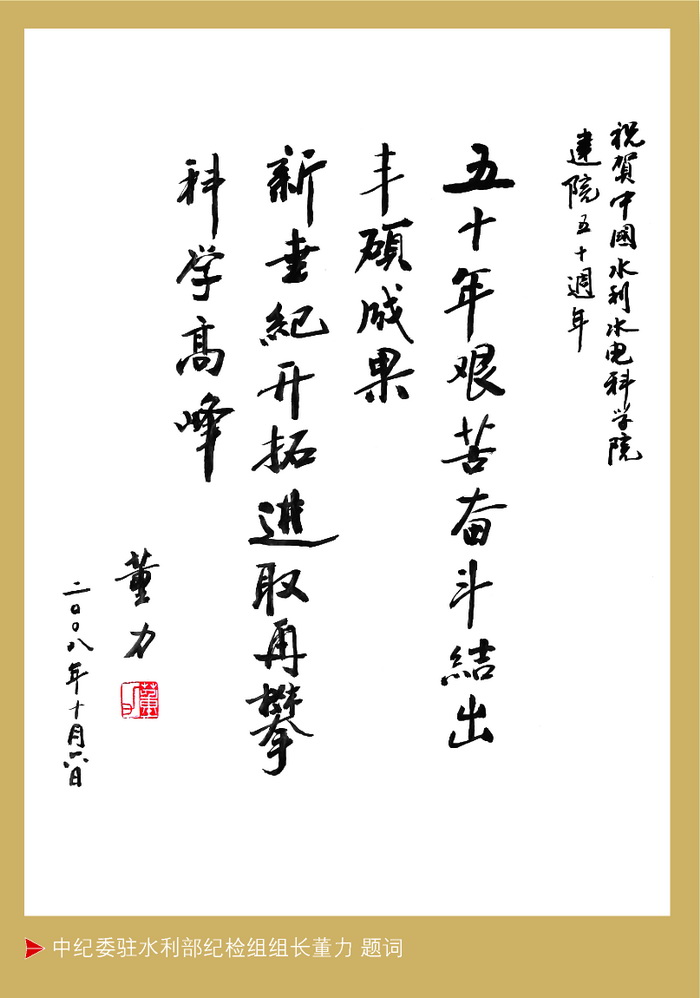 祝賀中國水利水电科学院
建院五十週年
五十年艰苦奋斗結出
丰碩成果
新世紀开拓進取再攀
科学高峰
董力
二〇〇八年十月六日
中纪委驻水利部纪检组组长董力 题词